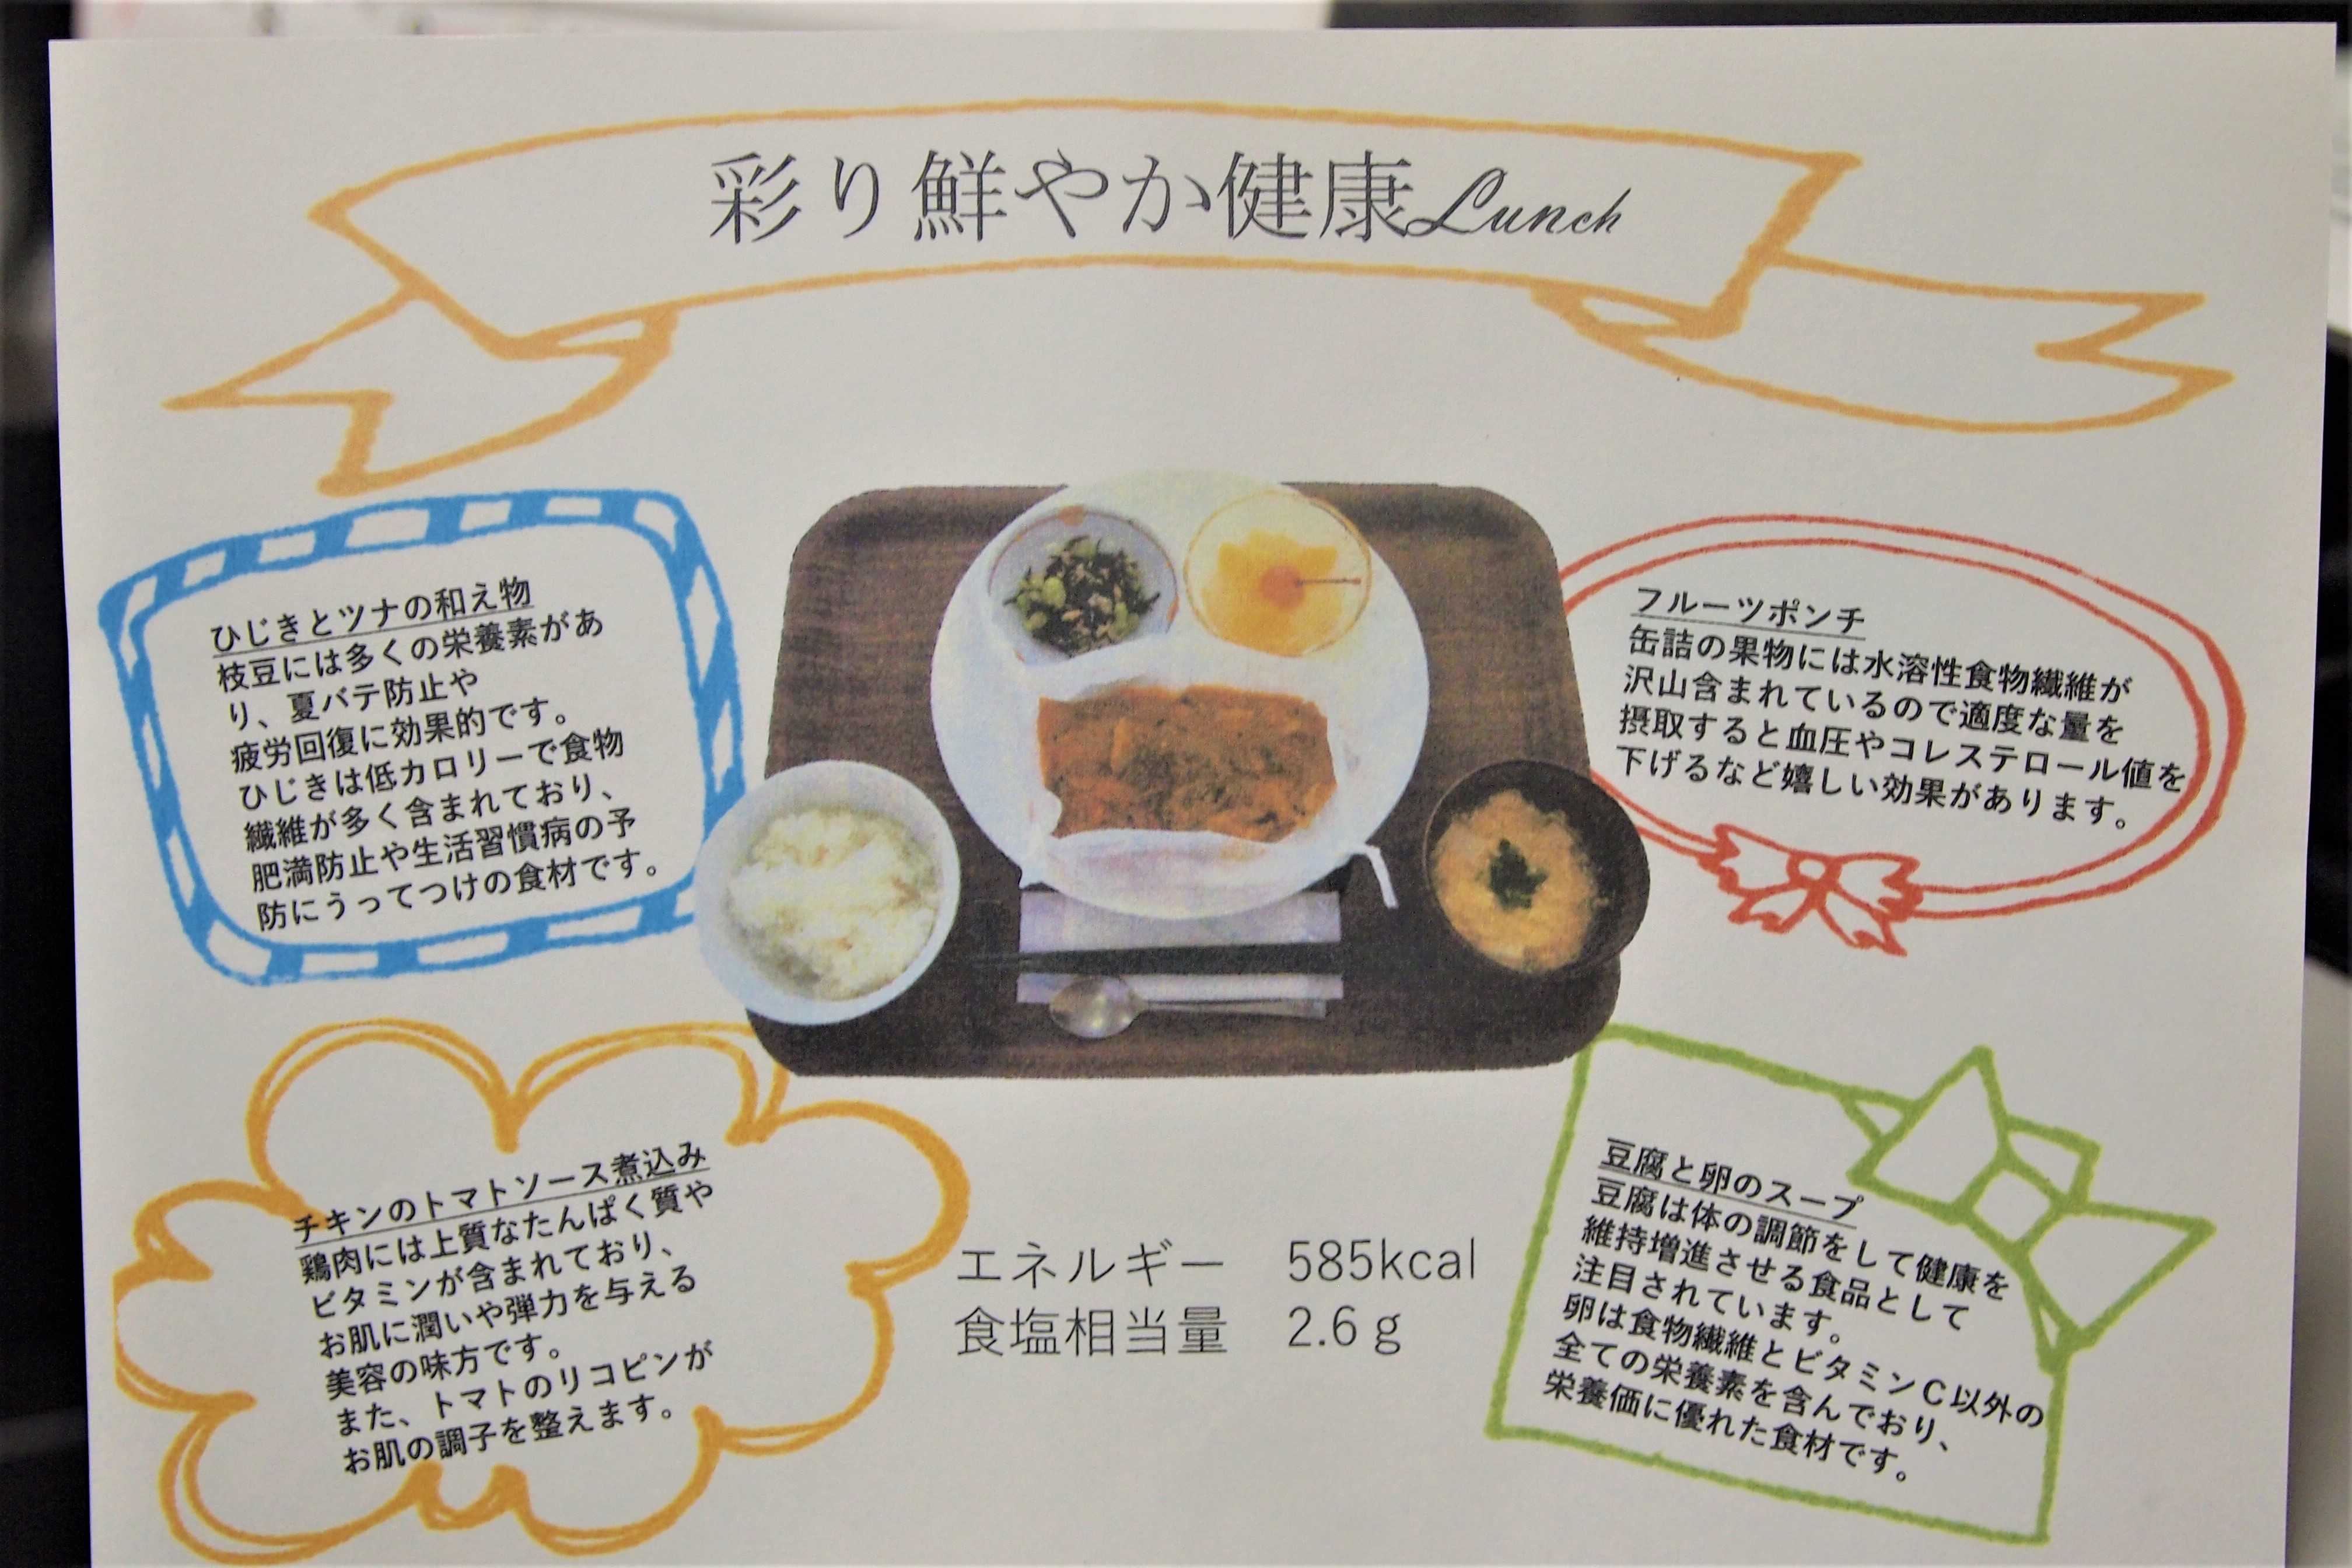 彩り鮮やか健康Lunch
ひじきとツナの和え物
枝豆には多くの栄養素があ
り、夏バテ防止や
疲労回復に効果的です。
ひじきは低カロリーで食物
繊維が多く含まれており、
肥満防止や生活習慣病の予
防にうってつけの食材です。
フルーツポンチ
缶詰の果物には水溶性食物繊維が
沢山含まれているので適度な量を
摂取すると血圧やコレステロール値を
下げるなど嬉しい効果があります。
チキンのトマトソース煮込み
鶏肉には上質なたんぱく質や
ビタミンが含まれており、
お肌に潤いや弾力を与える
美容の味方です。
また、トマトのリコピンが
お肌の調子を整えます。
エネルギー 585kcal
食塩相当量 2.6g
豆腐と卵のスープ
豆腐は体の調節をして健康を
維持増進させる食品として
注目されています。
卵は食物繊維とビタミンC以外の
全ての栄養素を含んでおり、
栄養価に優れた食材です。